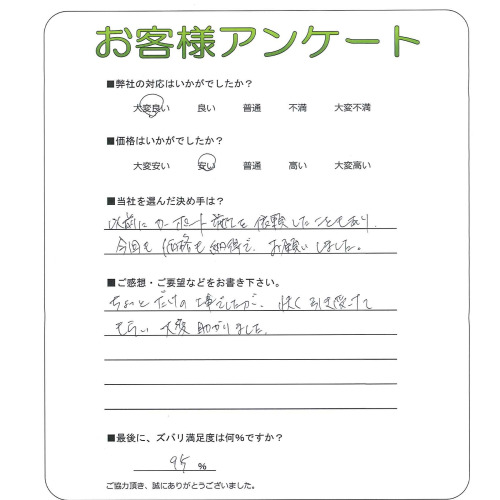 お客様アンケート
■弊社の対応はいかがでしたか？
大変良い 良い 普通 不満 大変不満
■価格はいかがでしたか？
大変安い 安い 普通 高い 大変高い
■当社を選んだ決め手は？
以前にカーポート施工を依頼したこともあり、
今回も価格も納得で、お願いしました。
■ご感想・ご要望などをお書き下さい。
ちょっとだけの工事でしたが、快く引き受けて
もらい大変助かりました。
■最後に、ズバリ満足度は何％ですか？
95 ％
ご協力頂き、誠にありがとうございました。